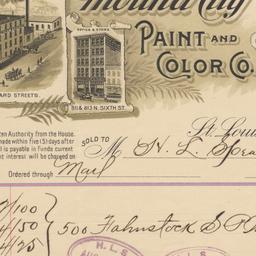 Mound City
PAINT AND
COLOR CO.
OFFICE & STORE.
811 & 813 N. SIXTH ST.
ARD STREETS.
ten Authority from the House.
made within five (5) days after
ll is payable in funds current
nt interest will be charged on
SOLD TO
St. Loui
M H. L.
Ordered through
Mail
500 Fahnstock S P
H. L. S.